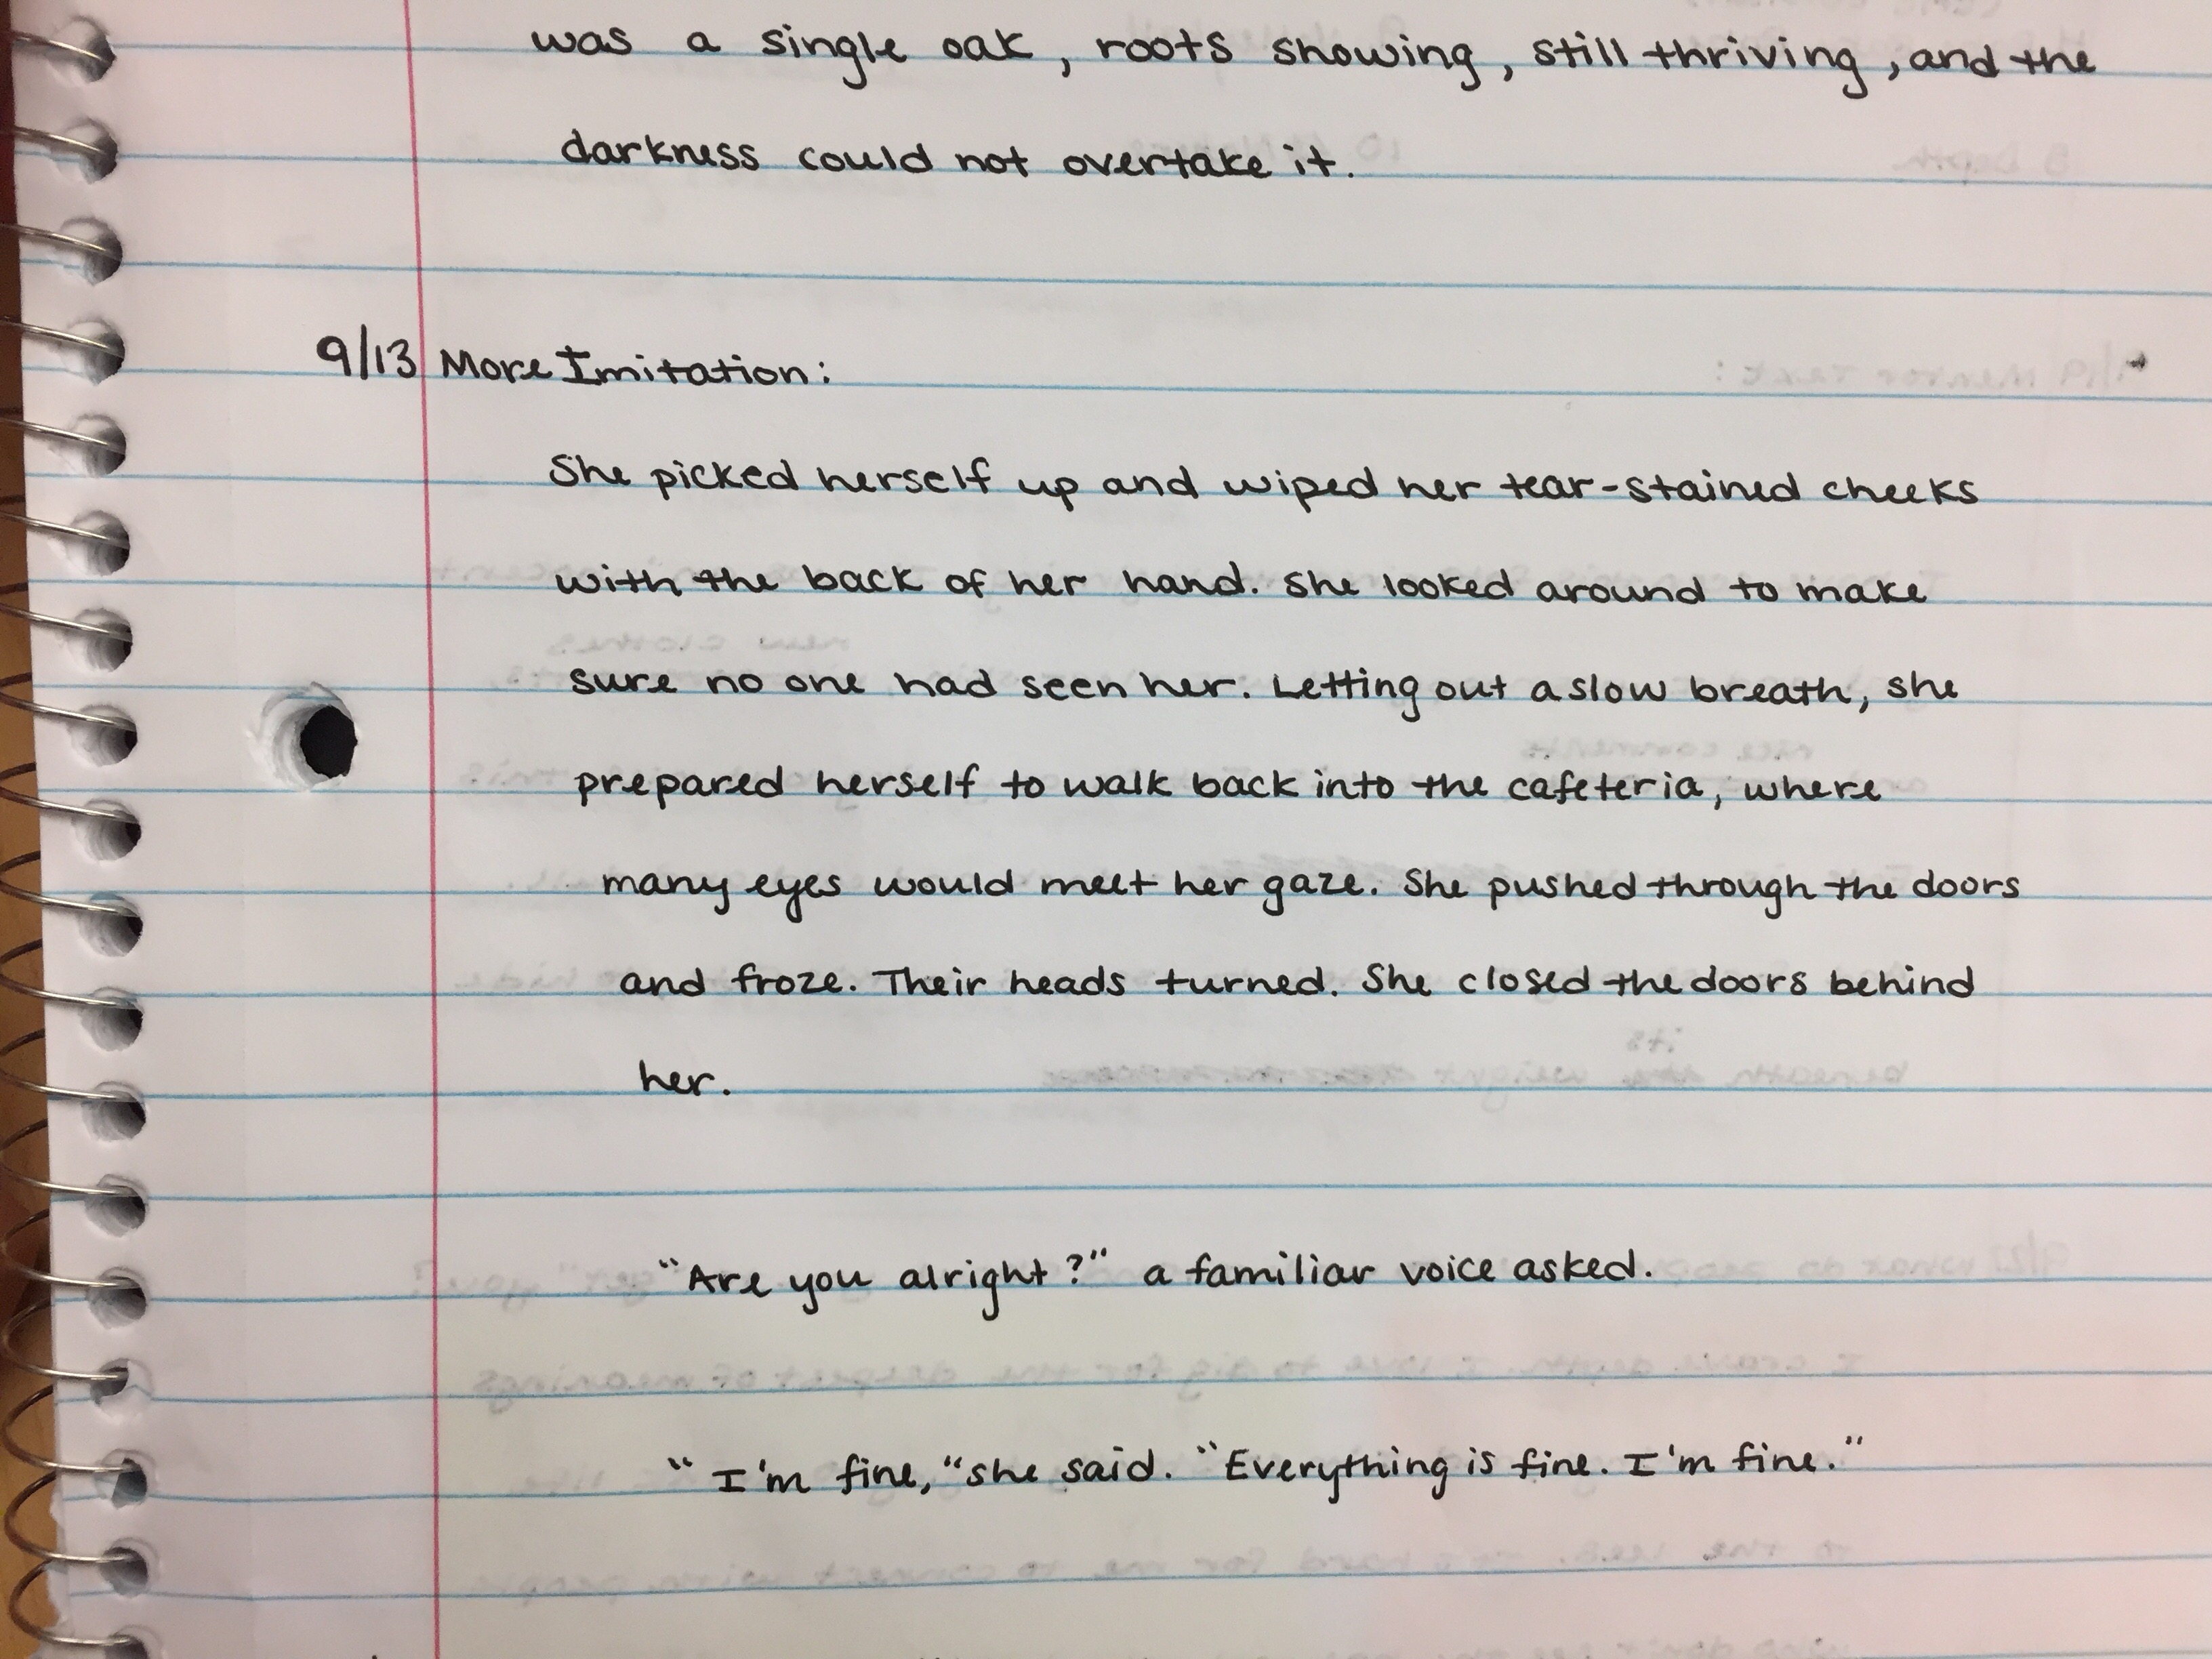 was a single oak, roots showing, still thriving, and the
darkness could not overtake it.
9/13 More Imitation:
She picked herself up and wiped her tear-stained cheeks
with the back of her hand. She looked around to make
sure no one had seen her. Letting out a slow breath, she
prepared herself to walk back into the cafeteria, where
many eyes would meet her gaze. She pushed through the doors
and froze. Their heads turned. She closed the doors behind
her.
"Are you alright?" a familiar voice asked.
"I'm fine," she said. "Everything is fine. I'm fine."